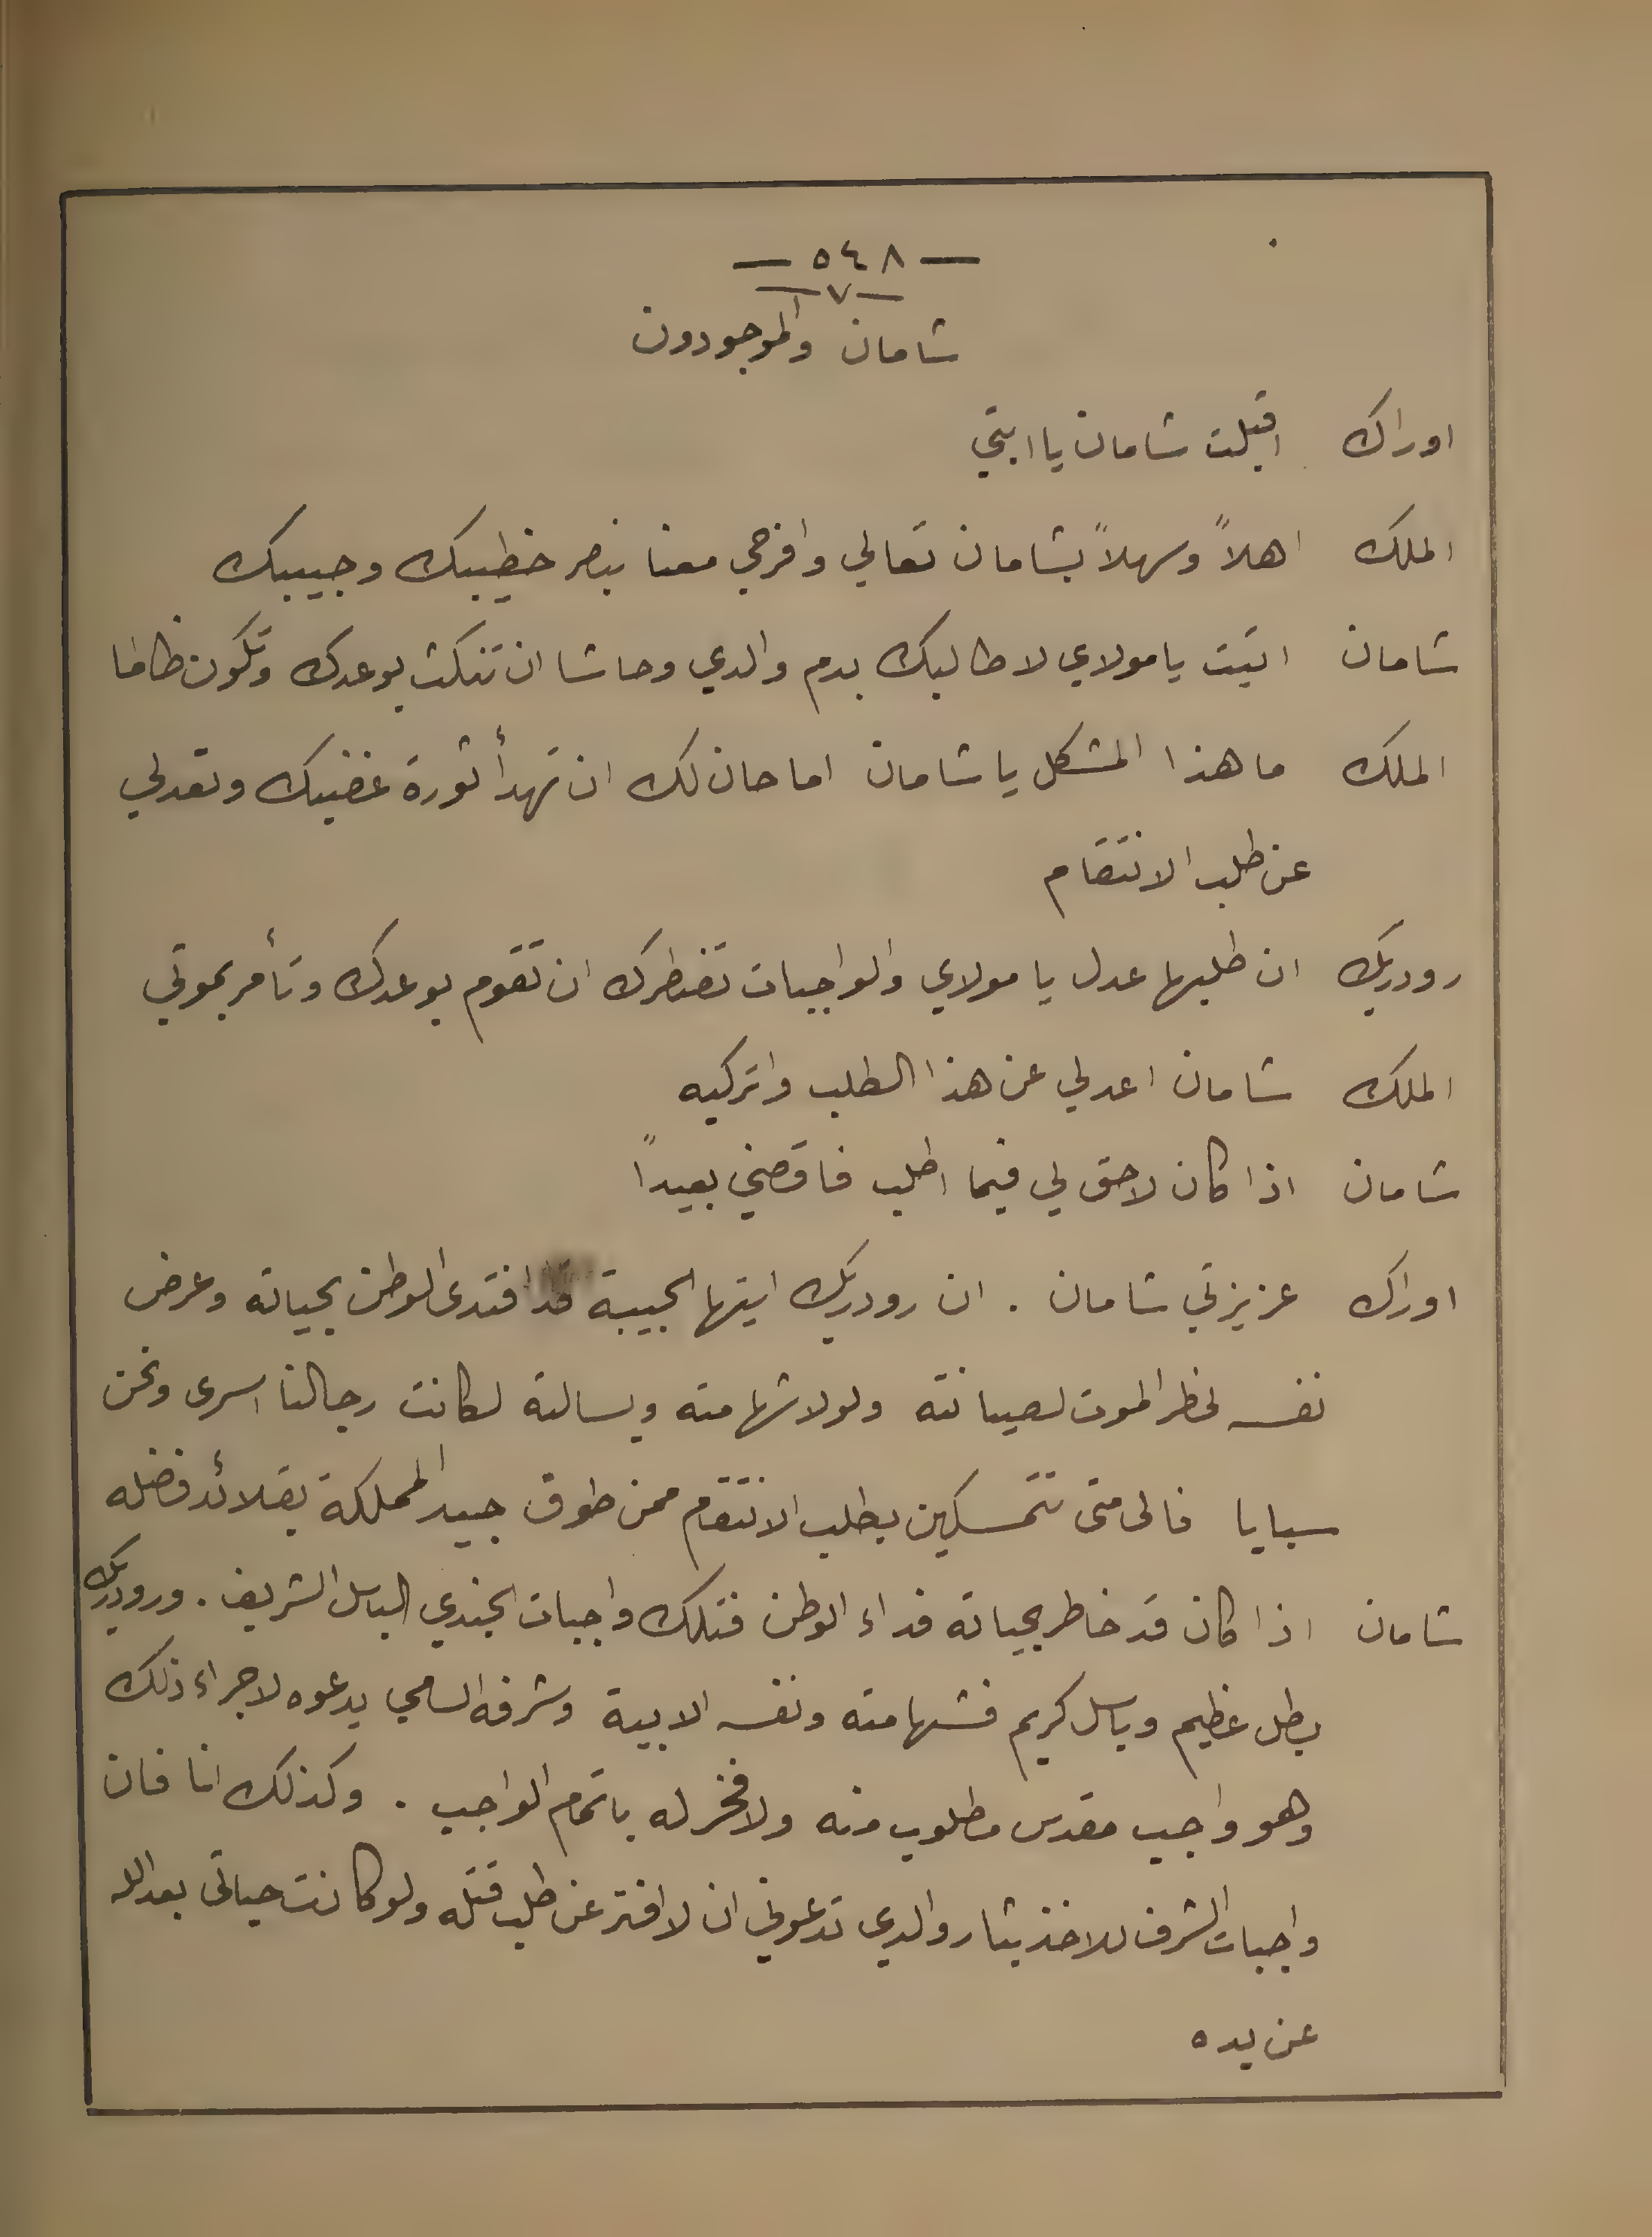 — ٥٤٨ —
— ٧ —
شامان والموجودون
اوراك اقبلت شامان يا ابتي
الملك اهلاً وسهلاً بشامان تعالي وافرحي معنا بنصر خطيبك وحبيبك
شامان اتيت يا مولاي لاطالبك بدم والدي وحاشا ان تنكث بوعدك وتكون ظالما
الملك ما هذا المشكل يا شامان اما حان لك ان تهدأ ثورة غضبك وتعدلي
عن طلب الانتقام
رودريك ان طلبها عدل يا مولاي والواجبات تضطرك ان تقوم بوعدك وتأمر بموتي
الملك شامان اعدلي عن هذا الطلب واتركيه
شامان اذا كان لا حق لي فيما اطلب فاقصني بعيداً
اوراك عزيزتي شامان . ان رودريك ايتها الحبيبة قد افتدى الوطن بحياته وعرض
نفسه لخطر الموت لصيانته ولولا شهامته وبسالته لكانت رجالنا اسرى ونحن
سبايا فالى متى تتمسكين بطلب الانتقام ممن طوق جيد المملكة بقلائد فضله
شامان اذا كان قد خاطر بحياته فداء الوطن فتلك واجبات الجندي الباسل الشريف . ورودريك
بطل عظيم وباسل كريم فشهامته ونفسه الابية وشرفه السامي يدعوه لاجراء ذلك
وهو واجب مقدس مطلوب منه ولا فخر له باتمام الواجب . وكذلك انا فان
واجبات الشرف للاخذ بثار والدي تدعوني ان لا افتر عن طلب قتله ولو كانت حياتي بعد الله
عن يده